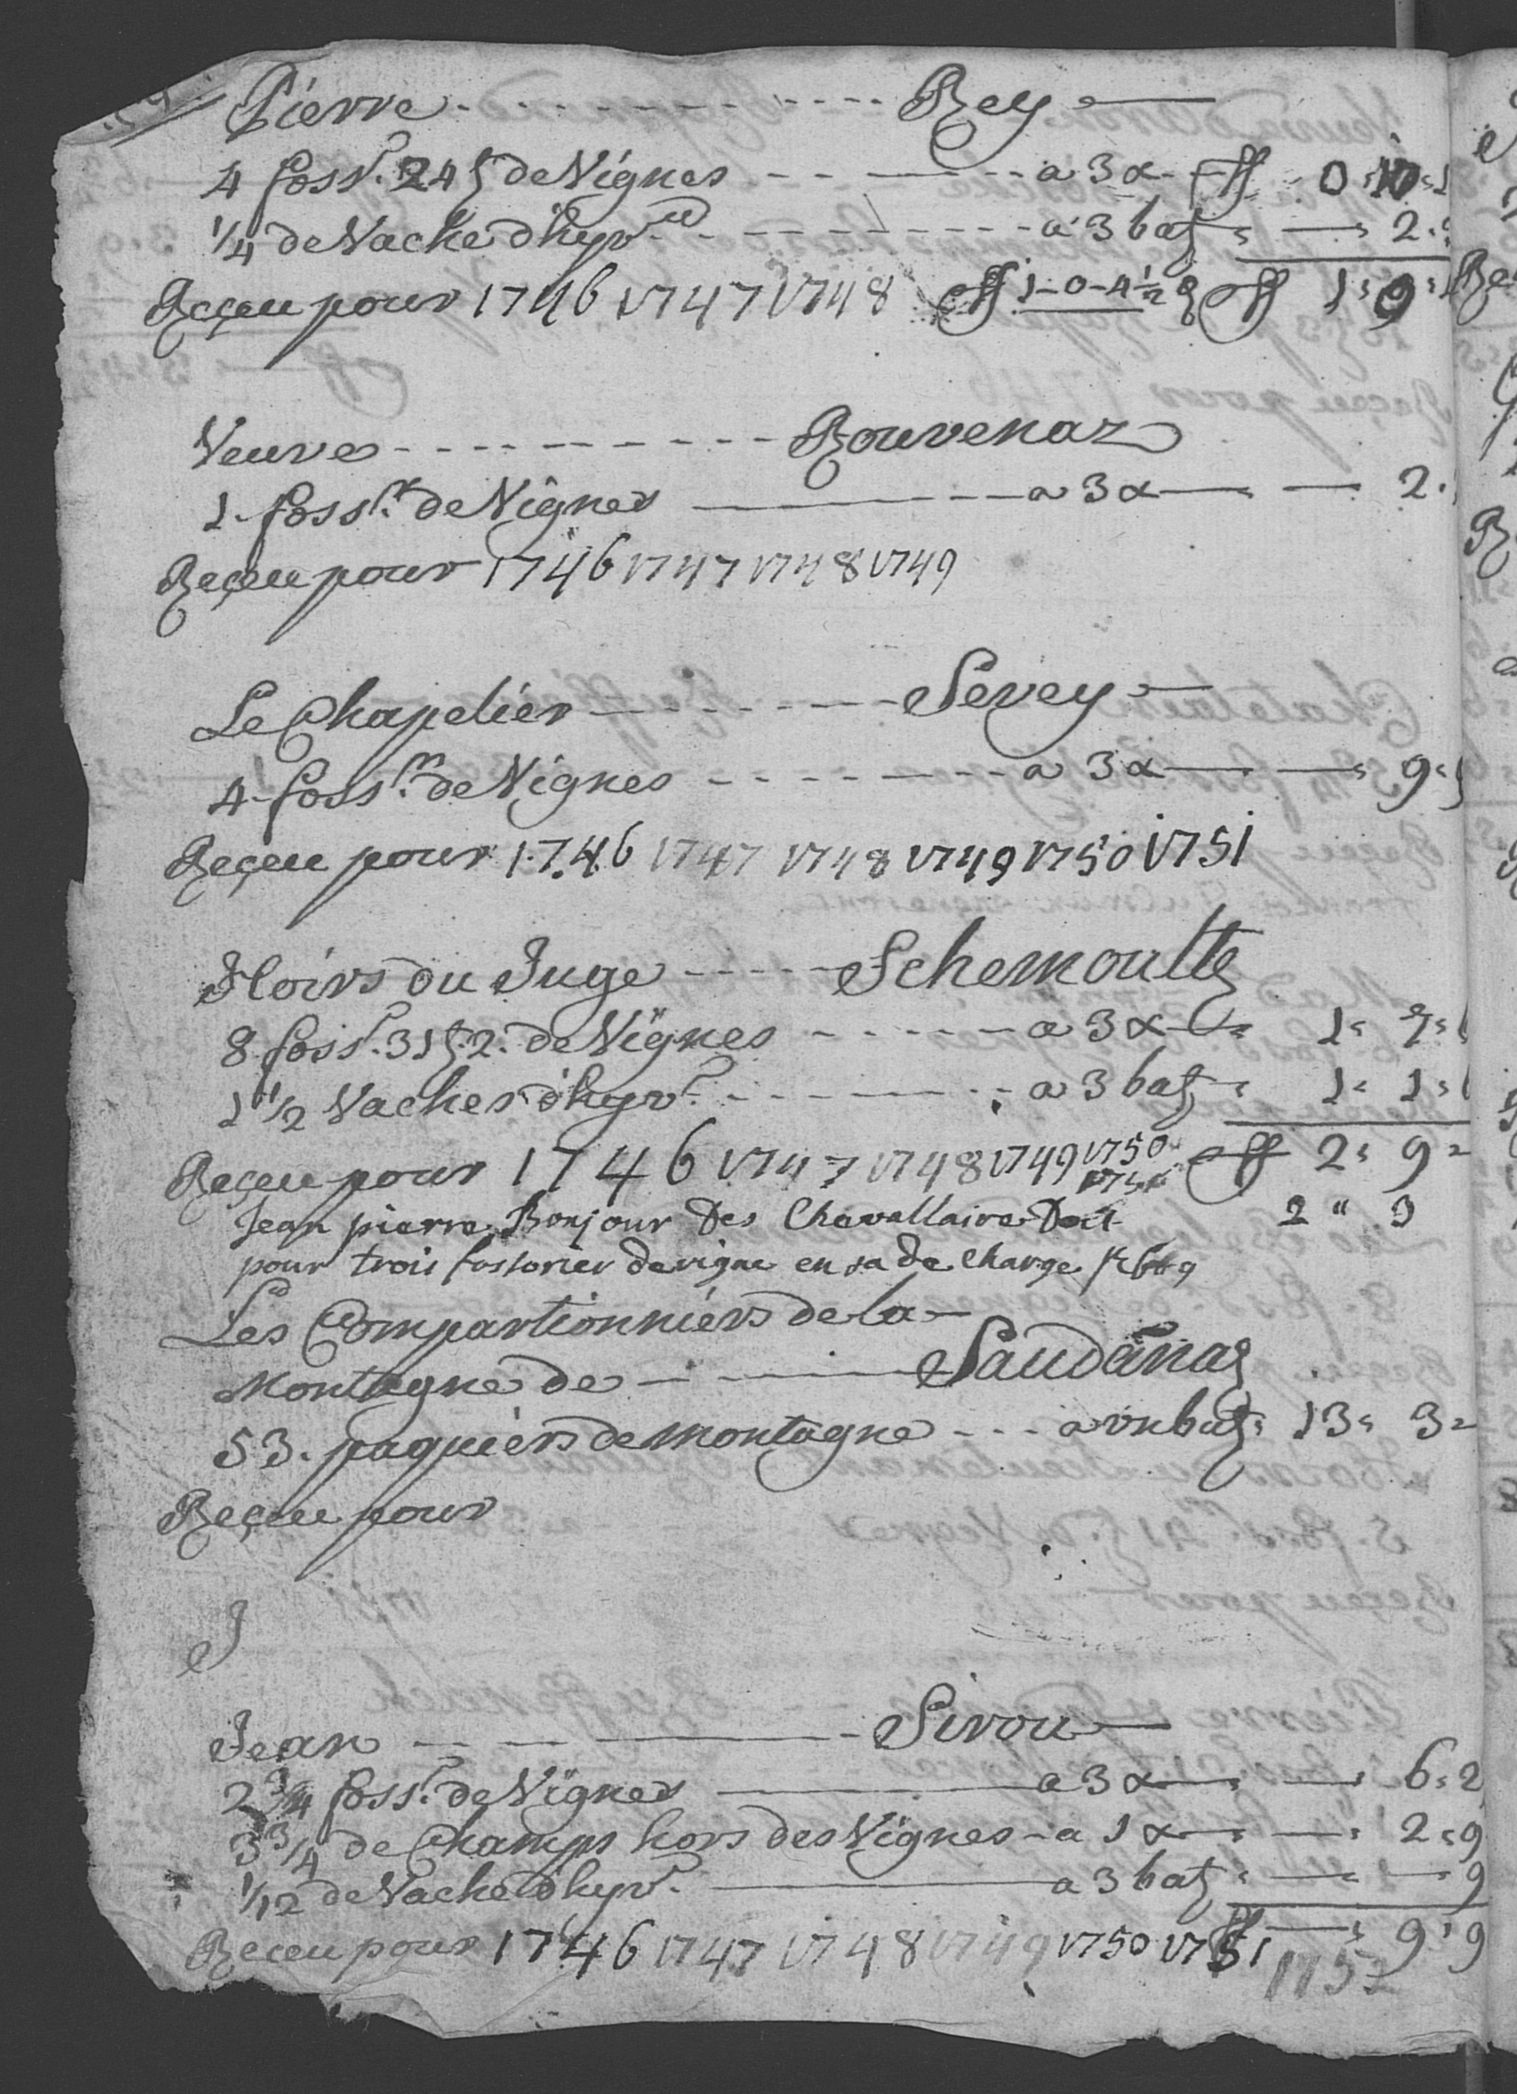 Pierre - - - - - - - - - Rey
4 foss.r 24 ʒ de Vignes - - - - - a 3 x ff 0 : 10 :
1/4 de Vache d'hyver - - - - - - - a 3 batz — 2 .
Reçeu pour 1746 1747 1748 ff 1-0-4 1/2 ff 1 : 9 :
Veuve - - - - - - - - - Rouvenaz
1. foss.r de Vignes - a 3 x — 2 .
Reçeu pour 1746 1747 1748 1749
Le Chapelier - - - - - - Sevey
4 foss.rs de Vignes - - - - - - a 3 x — 9 :
Reçeu pour 1746 1747 1748 1749 1750 1751
Hoirs du Juge - - - - Schemoultz
8 foss.r 31 ʒ 2. de Vignes - - - - - a 3 x 1 : 7 :
1 1/2 Vaches d'hyv.r - - - - - a 3 batz 1 : 1 :
Reçeu pour 1746 1747 1748 1749 1750 1751 ff 2 : 9 :
Jean pierre Bonjour Des Chavallaire Doit 2 " 3
pour trois fossorier de vigne en sa de charge
Les Compartionniers de la
Montagne de - - - - Saudanaz
53. paquiers de montagne - - - a un batz 13 : 3 :
Reçeu pour
J
Jean - - - - - Sirou
2 3/4 foss.r de Vignes - a 3 x — 6 : 2
3 3/4 de Champs hors des Vignes - a 1 x — 2 : 9
1/12 de Vache d'hyv.r - a 3 batz — 9
Reçeu pour 1746 1747 1748 1749 1750 1751 ff — 9 : 9
1752